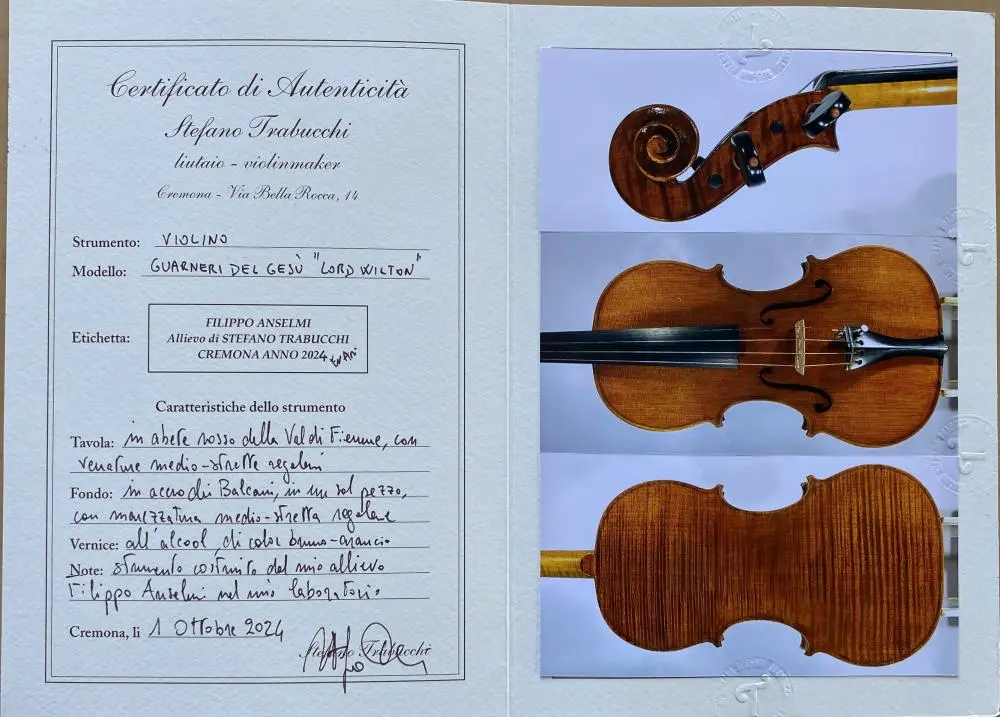 Certificato di Autenticità
Stefano Trabucchi
liutaio - violinmaker
Cremona - Via Bella Rocca, 14
Strumento: VIOLINO
Modello: GUARNERI DEL GESÙ "LORD WILTON"
Etichetta:
FILIPPO ANSELMI
Allievo di STEFANO TRABUCCHI
CREMONA ANNO 2024
Caratteristiche dello strumento
Tavola: in abete rosso della Val di Fiemme, con
venature medio-strette regolari
Fondo: in acero dei Balcani, in un sol pezzo,
con marezzatura medio-stretta regolare
Vernice: all'alcool, di color bruno-arancio
Note: strumento costruito dal mio allievo
Filippo Anselmi nel mio laboratorio
Cremona, li 1 Ottobre 2024
Stefano Trabucchi